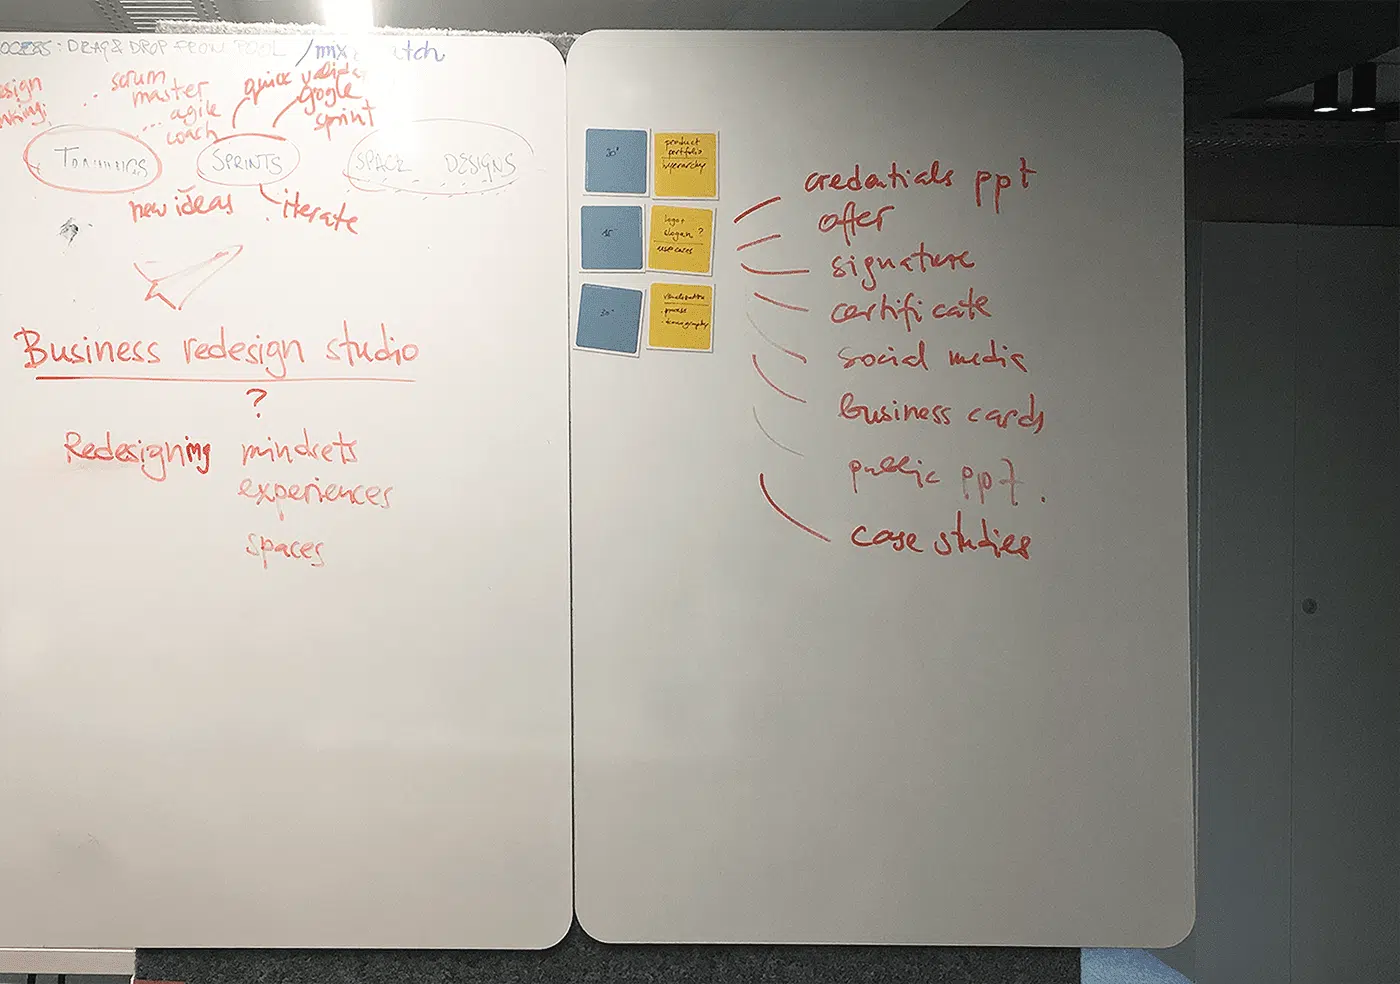 DRAG & DROP FROM POOL / mix
scrum
master
agile
coach
quick
google
sprint
TRAININGS
SPRINTS
SPACE DESIGNS
new ideas
iterate
Business redesign studio
?
Redesigning mindsets
experiences
spaces
30"
product
portfolio
hierarchy
15"
logo +
slogan ?
use cases
30"
visualization
process
credentials ppt
offer
signature
certificate
social media
Business cards
public ppt.
case studies